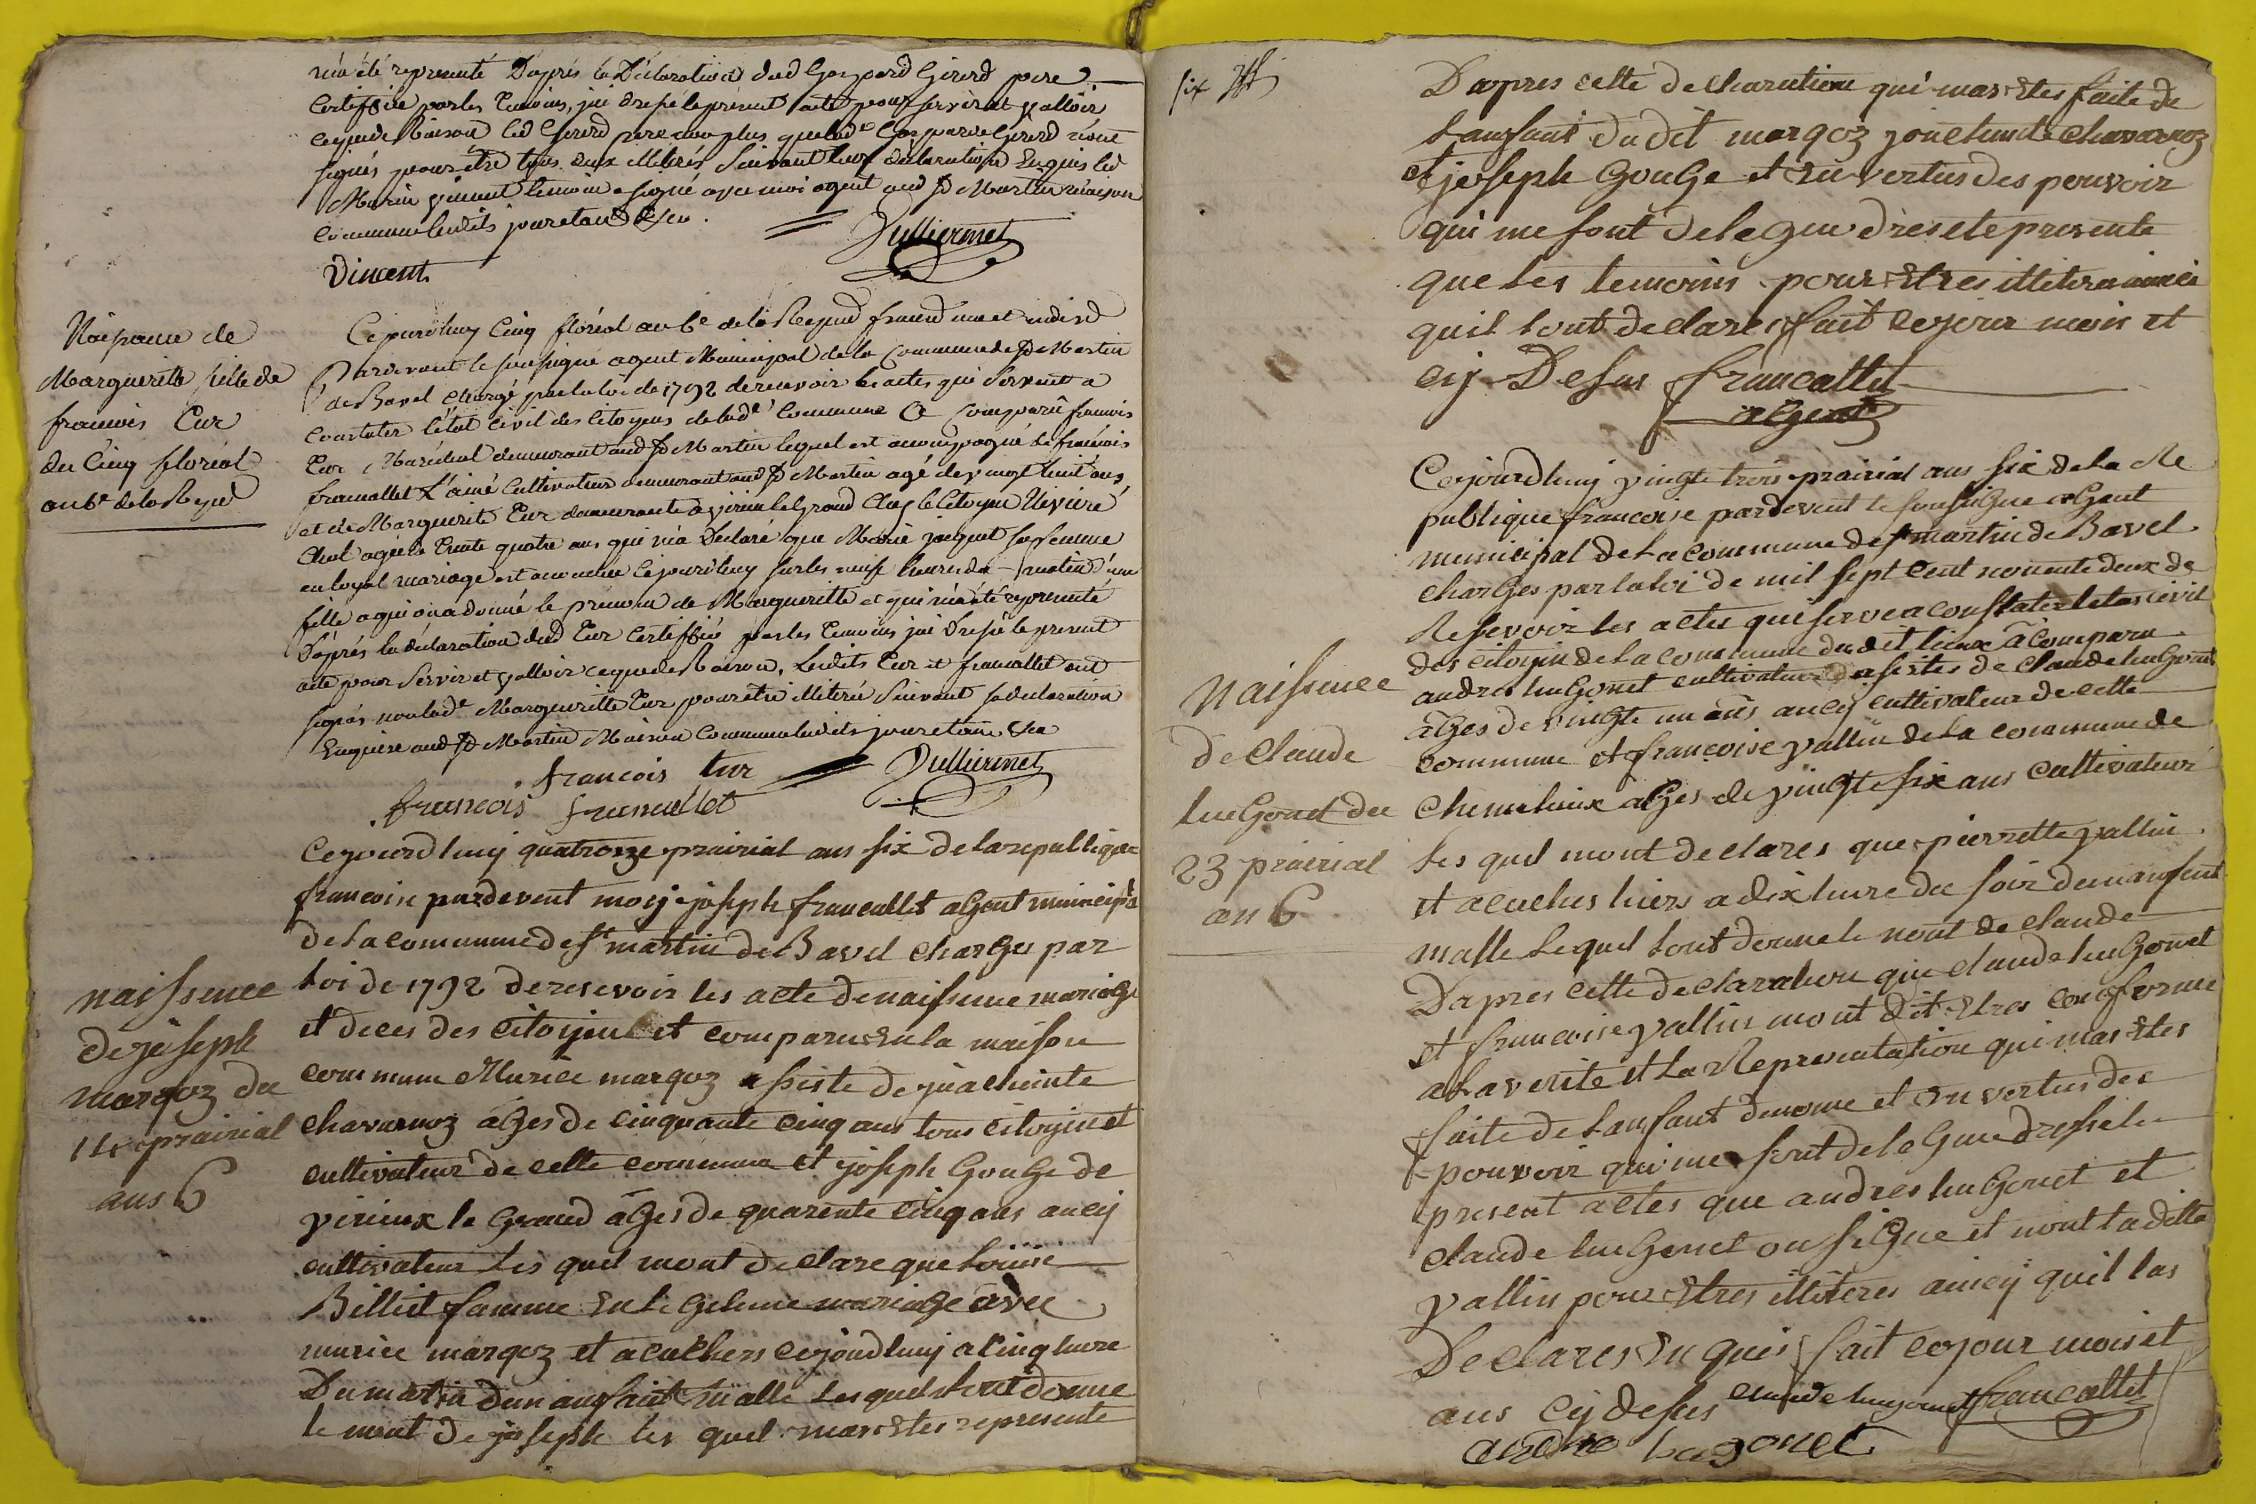 m'a été representé D'après la Déclaration dud Gaspard Girerd pere
Certiffiée par les Temoins, j'ai dressé le présent acte pour servir et valloir
ce que de Raison led Girerd pere non plus que lad.e Gasparde Girerd n'ont
signés pour être tous deux illiterés suivant leur declaration Enquis led
Marin vincent temoin a signé avec moi agent aud St Martin maison
commune lesdits jour et an &sen.
Vincent
Jullierme
Naissance de
Marguerite fille de
françois Tur
du Cinq floréal
an 6e de la Repud
Cejourdhuy Cinq floréal an 6e de la Repud francd une et indivd
Pardevant le soussigné agent Municipal de la Commune de St Martin
de Bavel chargé par la loi de 1792 de recevoir les actes qui servent a
Constater l'état civil des Citoyens de lad.e Commune a comparu françois
Tur Maréchal demeurant aud St Martin lequel est accompagné de francois
francallet L'ainé Cultivateur demeurant aud St Martin agé de vingt huit ans,
et de Marguerite Tur demeurante a virieu le Grand Chez le Citoyen
agée de Trente quatre ans qui m'a Declaré que Marie jacquet sa femme
en loyal mariage est accouchée Cejourdhuy sur les neuf heures du matin d'une
fille a qui on a donné le prenom de Margueritte et qui m'a été representé
D'après la déclaration dud Tur Certiffié par les Temoins j'ai Dressé le present
acte pour servir et valloir ce que de Raison. Lesdits Tur et francallet ont
signés non lad.e Margueritte Tur pour être illiterée suivant sa declaration
Enquise aud St Martin Maison Commune lesdits jour et an &sen
francois tur
Jullierme
francois francallet
naissence
de joseph
marqoz du
14 prairial
ans 6
Cejourdhuy quatroze prairial ans six de la republique
francoise pardevent moy joseph francallet agent municipal
de la commune de St martin de Bavel charges par
loi de 1792 de resevoir les acte de naissence mariage
et deces des citoijent et comparu en la maison
commune Murice marqoz assiste de joachinte
chavarnoz ages de cinquante cinq ans tous citoijen et
cultivateur de cette commune et joseph Gouge de
virieux le Grand ages de quarente cinq ans aucij
cultivateur les quel mont declare que Louise
Billiet famme en legeleme mariage avec
murice marqoz et acuchers cejourdhuy a cinq heure
Du matin dun anfant malle les quel lont donne
le nont de joseph les quel mas etes represente
six
Dapres cette declaration qui mas etes faite de
lanfant du dit marqoz joachinte chavarnoz
et joseph Gouge et en vertus des pouvoir
qui me sont delegue dresete presente
que les temoins pour etres illiteres aincéi
quil lont declares fait cejour mois et
cij Desus francallet
agent
naissence
de claude
huGonet du
23 prairial
an 6
Cejourdhuij vingte trois prairial ans six de la Re
publique francoise pardevent le sousigne agent
municipal de la commune de St martin de Bavel
charges par la loi de mil sept cent nonente deux de
Resevoir les actes qui serve a constater letas civil
des citoijin de la commune du dit lieux a comparu
andres huGonet cultivateur assistes de claude huGonet
ages de vingte un ans aucij cultivateur de cette
commune et francoise vallin de la commune de
ages de vingte six ans cultivateur
les quel mont declares que pierrette vallin
et acuches hiers a dix heure du soir dun anfent
malle lequel lont donne le nont de claude
Dapres cette declaration que claude huGonet
et francoise vallin mont dit etres conforme
a la verite et La Representation qui mas etes
faite de lanfant denome et en vertus des
pouvoir qui me sont delegue dresse le
present actes que andres huGonet et
claude huGonet on siGne et nont la ditte
vallin pour etres illiteres aincij quil las
Declares enquis fait cejour mois et
ans cij desus claude hugonet francallet
andre hugonet